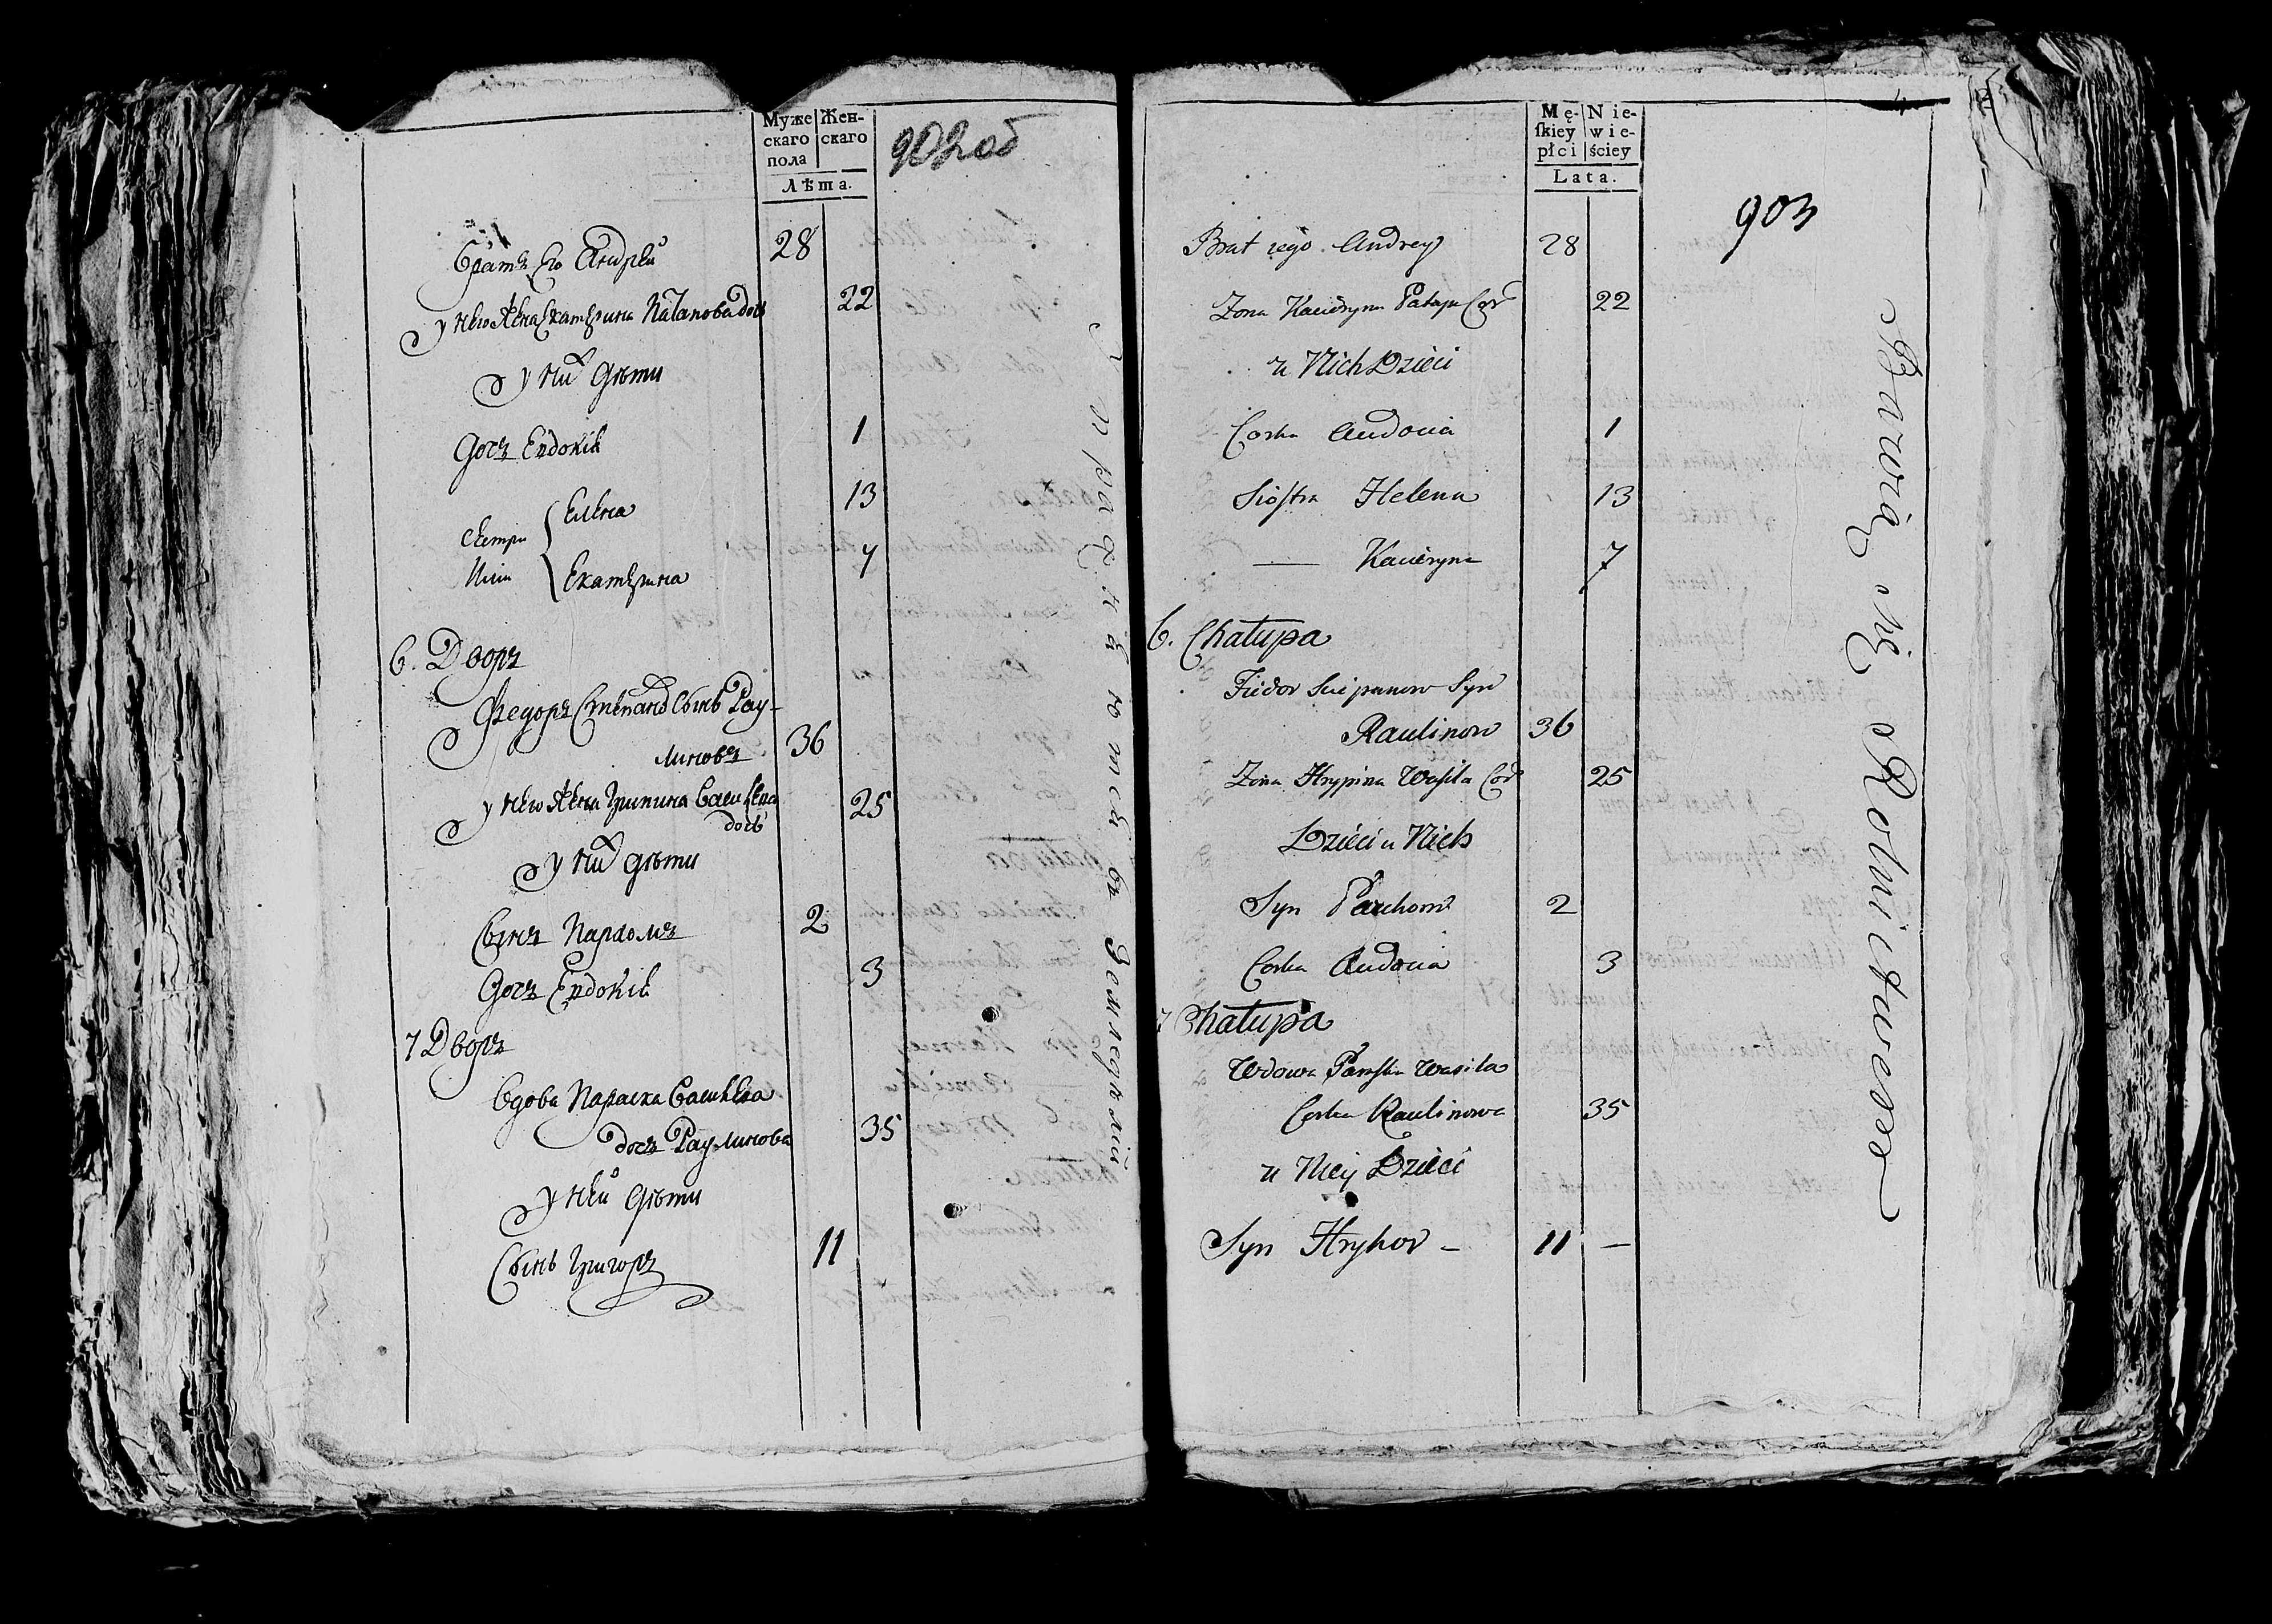 Муже
скаго
пола
Жен-
скаго
Лѣта.
902 об
братъ его Андрей 28
у него жена Екатерина Патапова дочь 22
у них дѣти
дочь Евдокія 1
сестры Елена 13
ихъ Екатерина 7
6. Дворъ
Федоръ Степановъ сынъ Рау-
линовъ 36
у него жена Грипина Василева
дочь 25
у них дѣти
Сынъ Пархомъ 2
дочь Евдокія 3
7 Дворъ
вдова Параска Василева
дочь Раулинова 35
у ней дѣти
Сынъ Григоръ 11
въ Земледѣлiи
Mę-
ſkiey
płci
Nie-
wie-
ściey
Lata.
903
Brat iego Andrey 28
Zona Kacieryna Patapa Cor 22
u Nich Dzieci
Corka Audocia 1
Siostra Helena 13
— Kacieryna 7
6. Chałupa
Fiedor Sciepanow Syn
Raulinow 36
Zona Hrypina Wasila Cor 25
Dzieci u Nich
Syn Parchom 2
Corka Audocia 3
7 Chałupa
Wdowa Paraska Wasila
Corka Raulinowa 35
u Niey Dzieci
Syn Hryhor – 11 —
Bawią się Rolnictwem